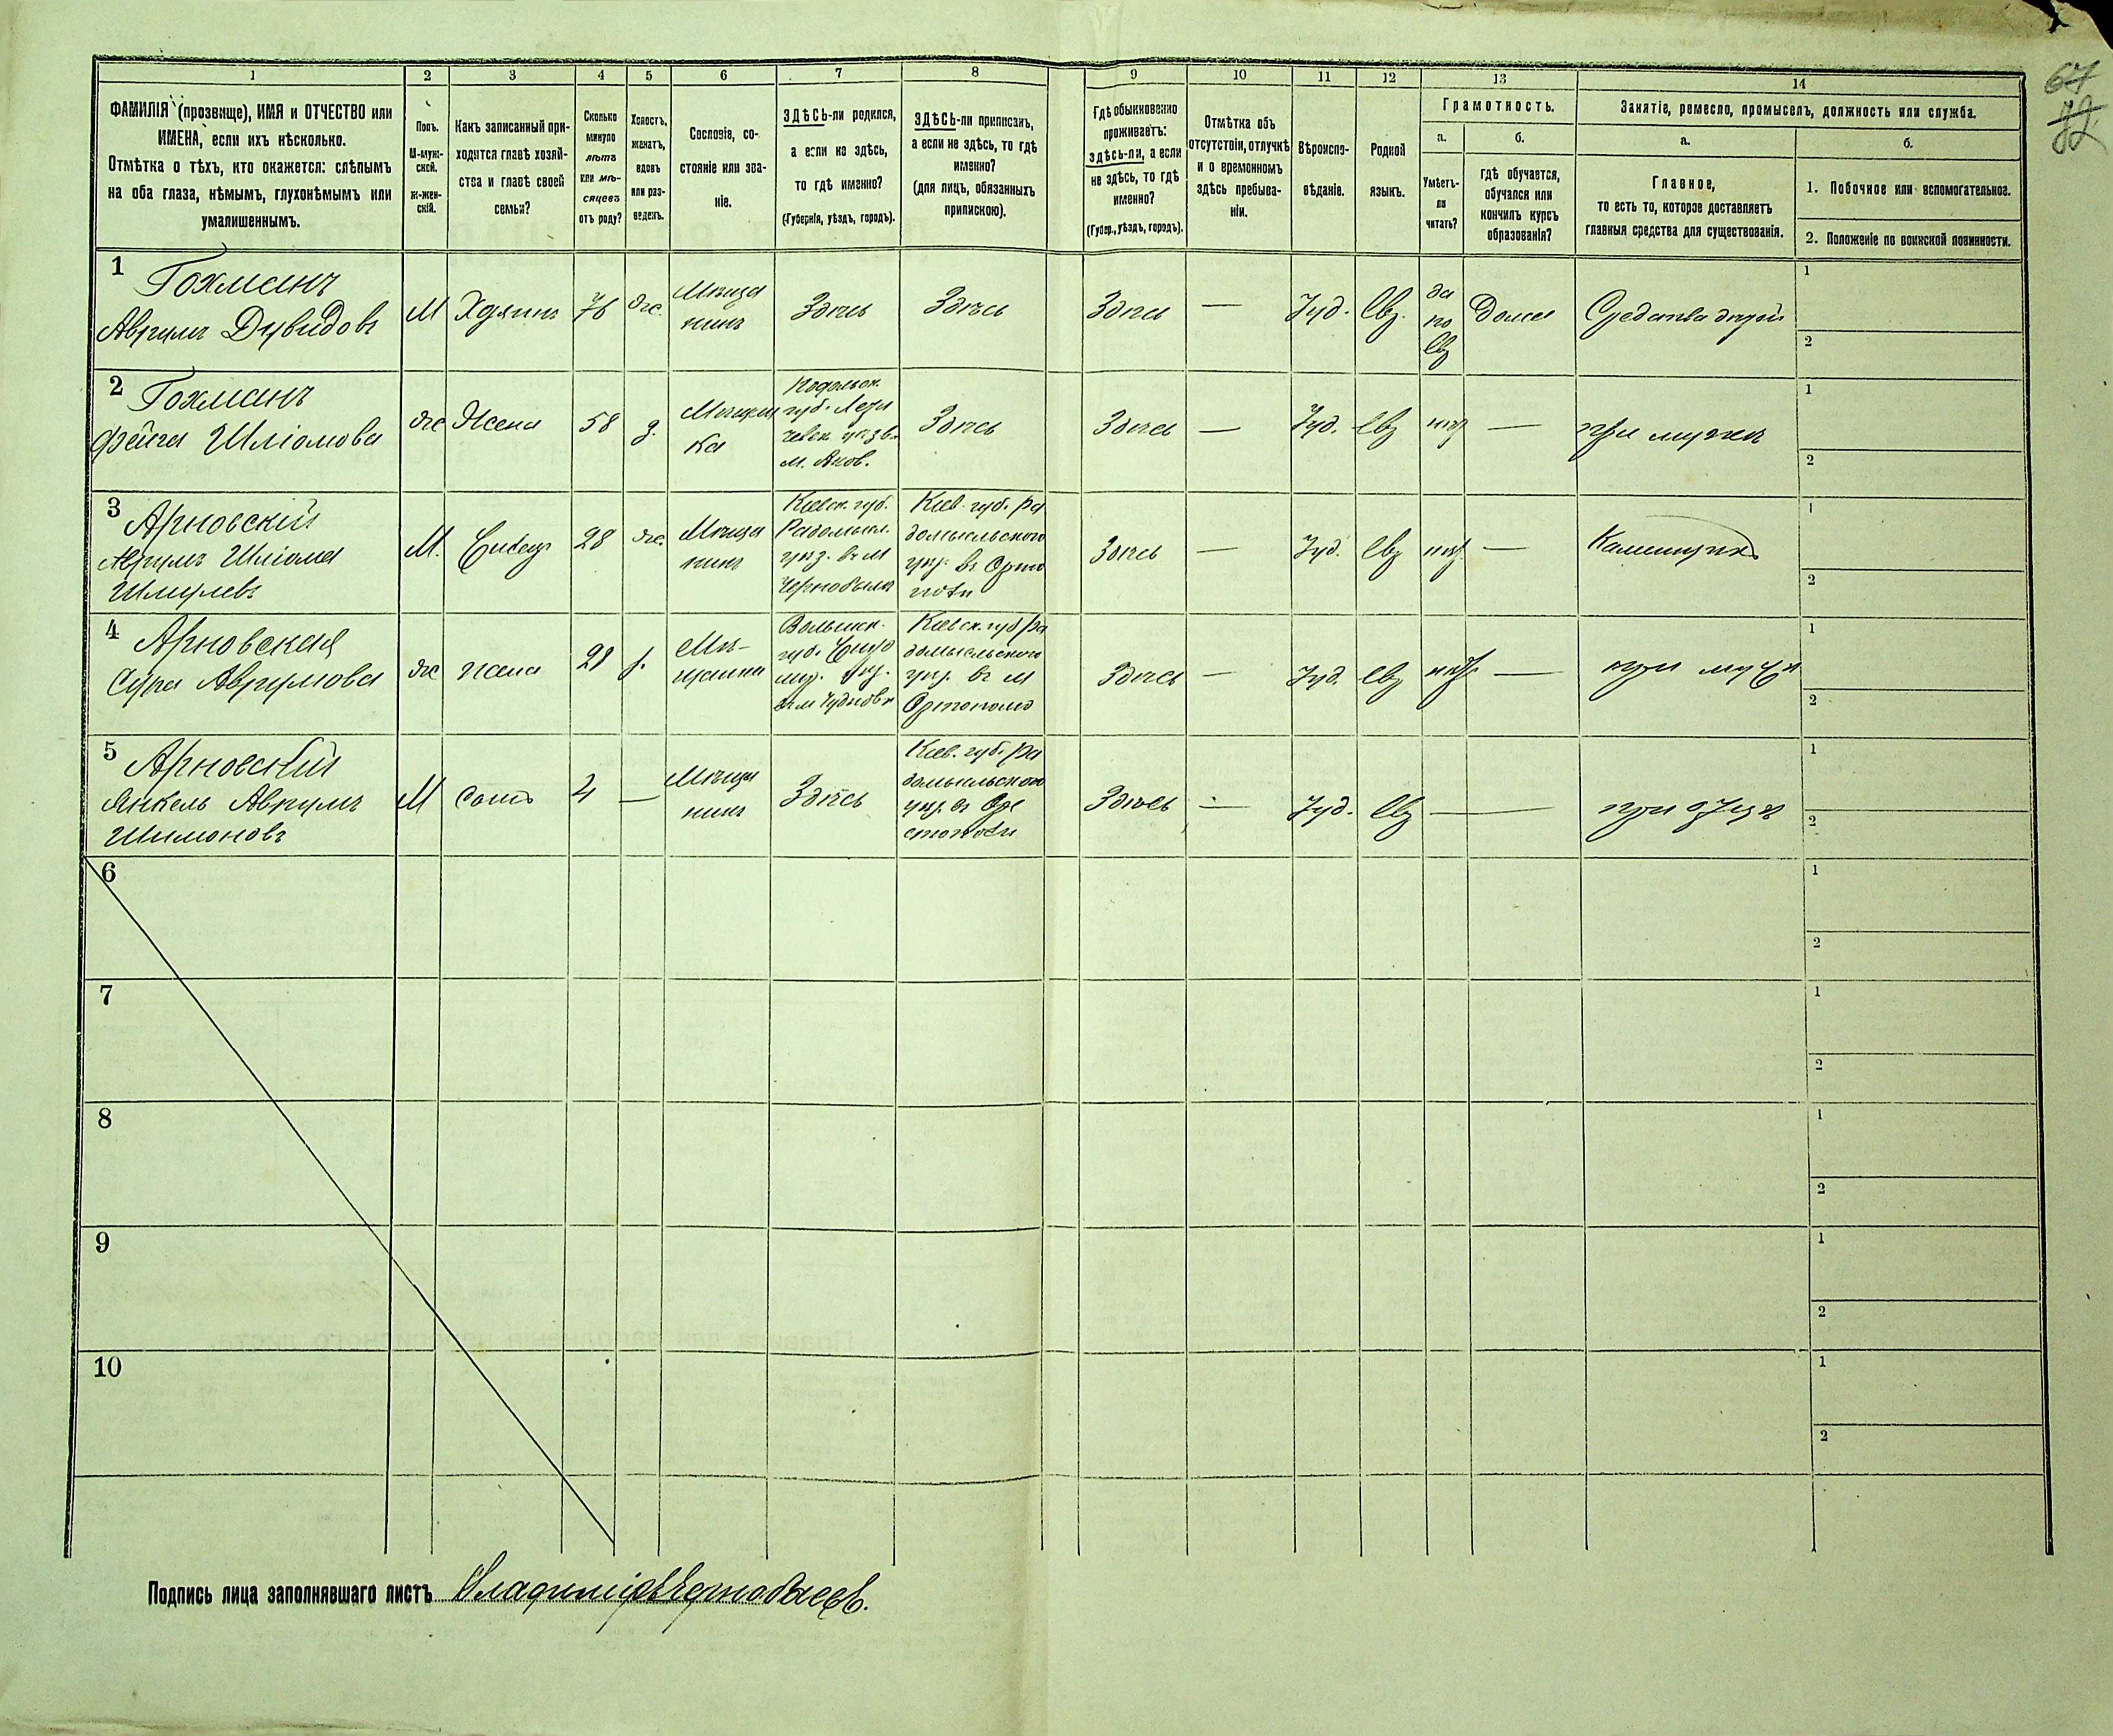 67
72
1 2 3 4 5 6 7 8 9 10 11 12 13 14
ФАМИЛІЯ (прозвище), ИМЯ и ОТЧЕСТВО или
ИМЕНА, если ихъ нѣсколько.
Отмѣтка о тѣхъ, кто окажется: слѣпымъ
на оба глаза, нѣмымъ, глухонѣмымъ или
умалишеннымъ.
Полъ.
М-муж-
ской.
Ж-жен-
скій.
Какъ записанный при-
ходится главѣ хозяй-
ства и главѣ своей
семьи?
Сколько
минуло
лѣтъ
или мѣ-
сяцевъ
отъ роду?
Холостъ,
женатъ,
вдовъ
или раз-
веденъ.
Сословіе, со-
стояніе или зва-
ніе.
ЗДѢСЬ-ли родился,
а если не здѣсь,
то гдѣ именно?
(Губернія, уѣздъ, городъ).
ЗДѢСЬ-ли приписанъ,
а если не здѣсь, то гдѣ
именно?
(для лицъ, обязанныхъ
припискою).
Гдѣ обыкновенно
проживаетъ:
здѣсь-ли, а если
не здѣсь, то гдѣ
именно?
(Губер., уѣздъ, городъ).
Отмѣтка объ
отсутствіи, отлучкѣ
и о временномъ
здѣсь пребыва-
ніи.
Вѣроиспо-
вѣданіе.
Родной
языкъ.
Грамотность.
а.
Умѣетъ-
ли
читать?
б.
гдѣ обучается,
обучался или
кончилъ курсъ
образованія?
Занятіе, ремесло, промыселъ, должность или служба.
а.
Главное,
то есть то, которое доставляетъ
главныя средства для существованія.
б.
1. Побочное или вспомогательное.
2. Положеніе по воинской повинности.
1
Гохманъ
Аврумъ Дувидовъ
М
76
же.
Мѣща
нинъ
Здѣсь
Здѣсь
Здѣсь
—
Іуд.
Евр.
да
по
Евр
Дома
Средства
1
2
2
Гохманъ
Фейга Шліомова
же
Жена
58
Мѣщан
ка
Подольск.
губ.
м.
Здѣсь
Здѣсь
—
Іуд.
Евр
нѣт
—
при мужѣ
1
2
3
Арновскій
Аврумъ Шліома
Шмулевъ
М.
28
же.
Мѣща
нинъ
Кіевск. губ.
Радомысл.
уѣз. въ м
Чернобыль
Кіев. губ. Ра
домысльского
уѣз. въ
Здѣсь
—
Іуд.
Евр
нѣт.
—
Каменщикъ
1
2
4
Арновская
Сура Аврумова
же
жена
Мѣ-
щанка
Волынск.
губ.
уѣз.
Кіевск. губ Ра
домысльского
уѣз. въ м
Здѣсь
—
Іуд.
Евр
нѣт
—
при мужѣ
1
2
5
Арновскій
Янкель Аврумъ
Шимоновъ
М
Сынъ
4
—
Мѣща
нинъ
Здѣсь
Кіев. губ. Ра
домысльского
уѣз. въ
Здѣсь
—
Іуд.
Евр
—
при отцѣ
1
2
6
1
2
7
1
2
8
1
2
9
1
2
10
1
2
Подпись лица заполнявшаго листъ